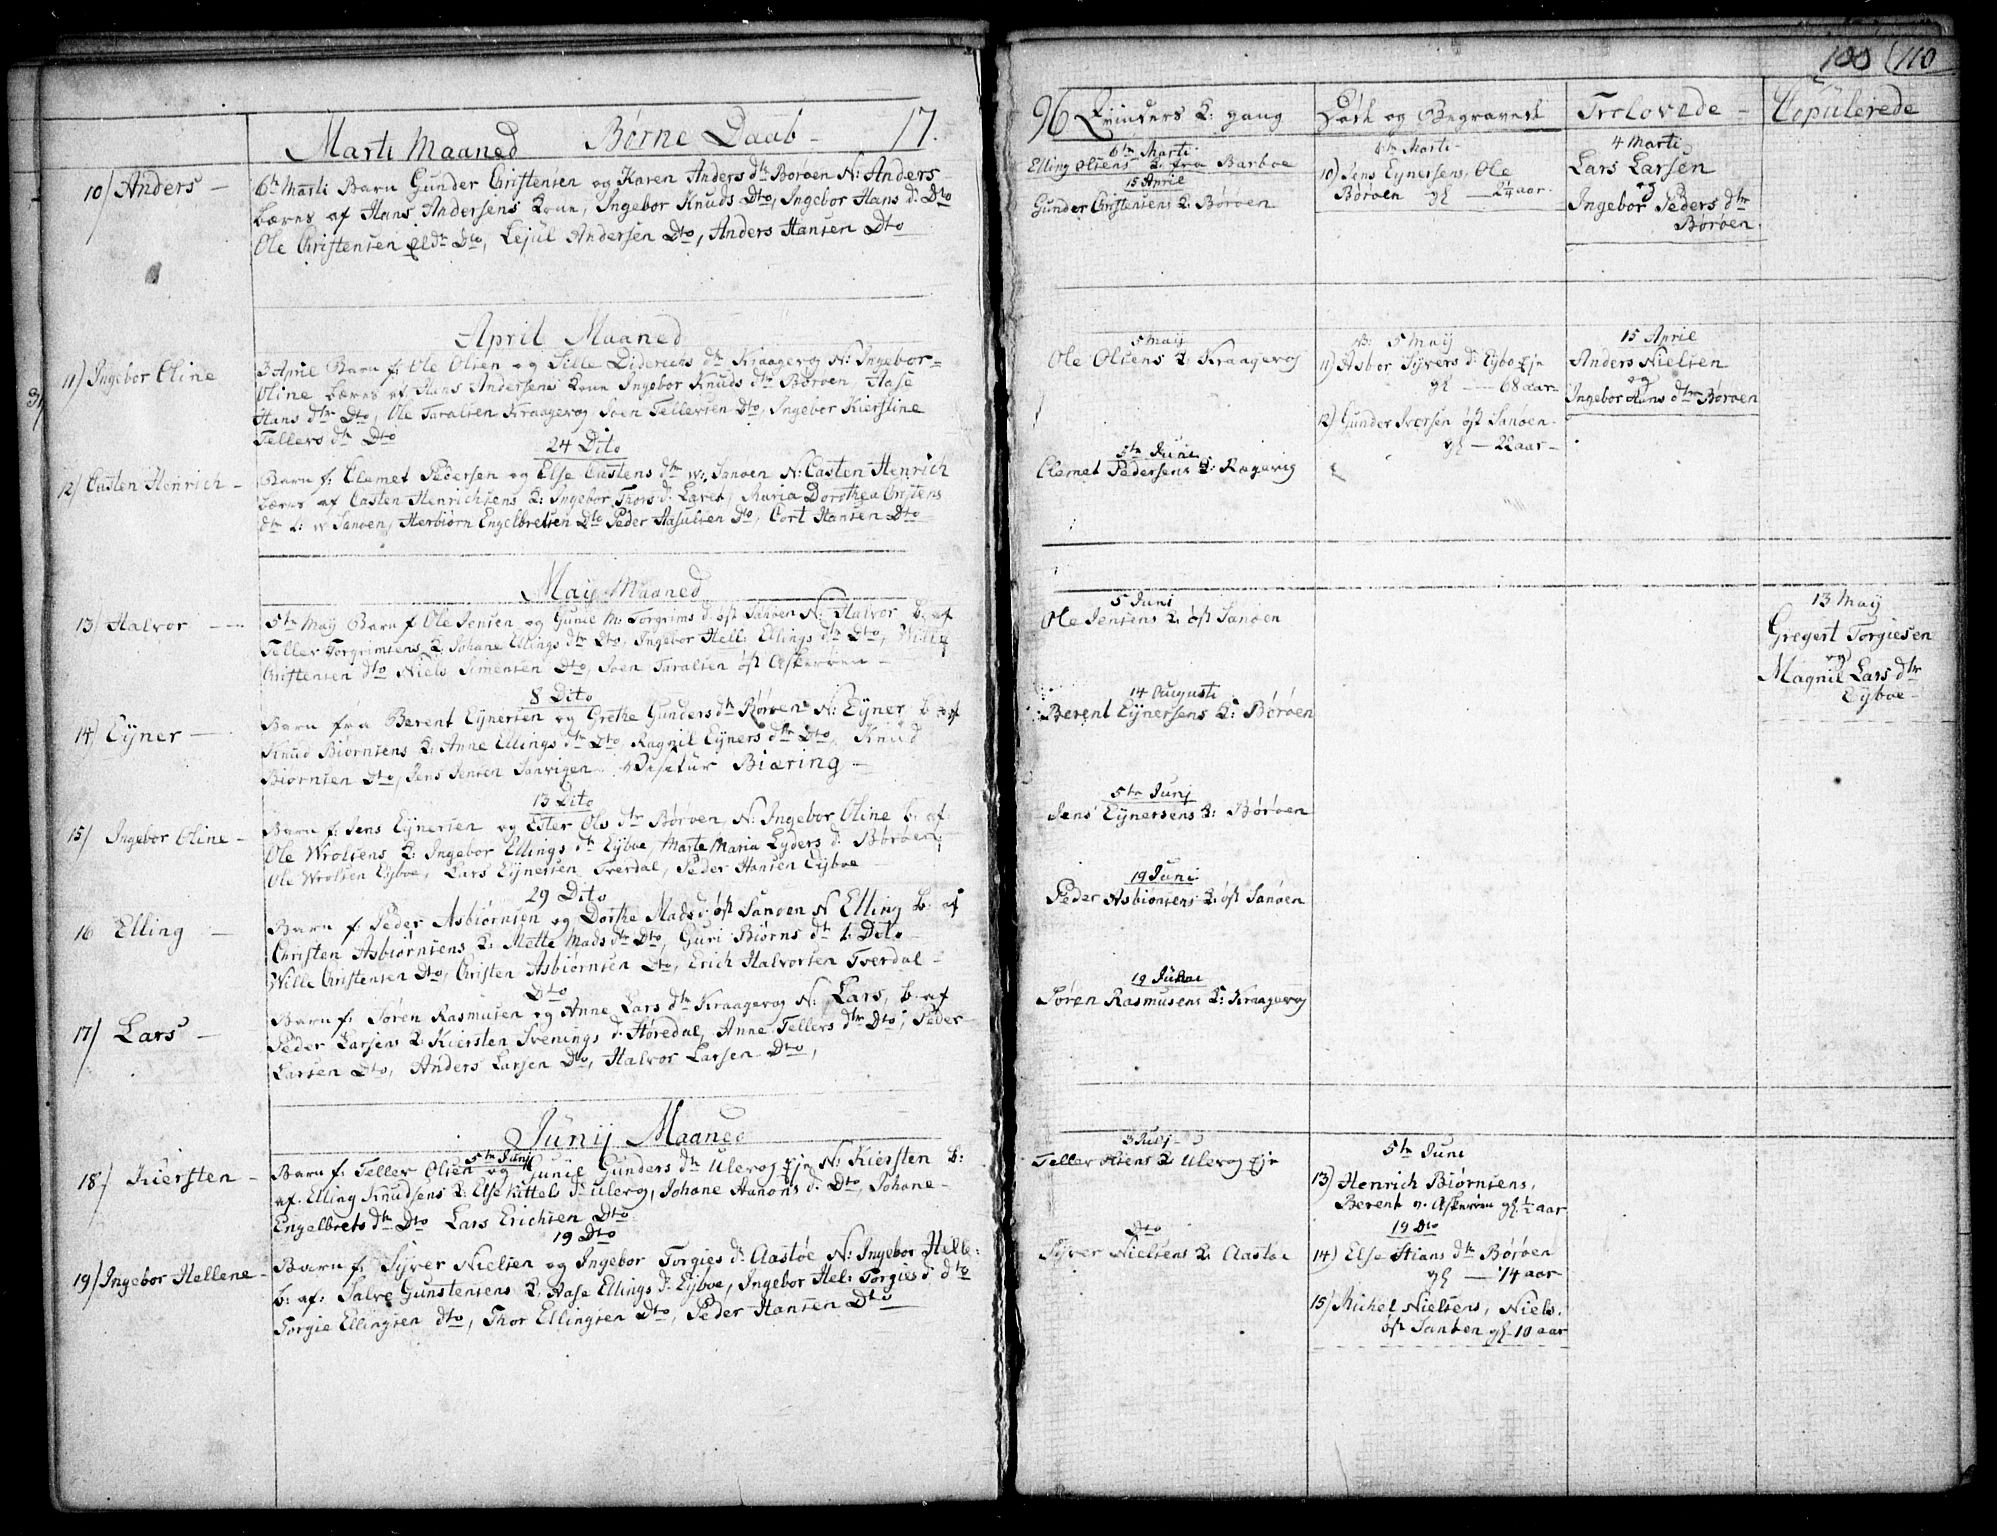 Marti Maaned Børne Daab 17.
10) Anders
6te Marti Barn Gunder Christensen og Karen Anders dtr Børøen N: Anders
baaren af Hans Andersens Kone, Ingebor Knuds Dto, Ingebor Hans d: Dto
Ole Christensen eldr Dto, Lejul Andersen Dto, Anders Hansen Dto
April Maaned
11) Ingebor Oline
3 April Barn f: Ole Olsen og Sille Diderichs dtr Kraagevog N: Ingebor=
Oline baaren af Hans Andersens Kone Ingebor Knuds dtr Børøen, Aase
Hans dtr Dto, Ole Taralsen Kraagevog, Soen Tellevsen Dto, Ingebor Kierstine
Tellevs dtr Dto
24 Dito
12) Casten Henrich
Barn f: Clemet Pedersen og Else Castens dtr w: Sanøen N: Casten Henrich
baaren af Casten Henrichsens K: Ingebor Thors d: Lavet, Maria Dorothea Cristens
dtr w Sanøen, Herbiørn Engelbretsen Dto Peder Aasulsen Do, Cort Hansen Dto
May Maaned
13) Halvor
5te May Barn f Ole Jensen og Gunil M: Torgrims d: øst Sanøen N: Halvor b. af
Tellef Torgrimsens K: Johane Ellings dtr Dto, Ingebor Hell: Ellings dtr Dto, Wille
Christensen dto Niels Simensen Dto, Soen Taralsen øst Askerøen
8 Dito
14) Eyner
Barn fra Berent Eynersen og Grethe Gunders dtr Børøen N: Eyner b: af
Knud Biørnsens K: Anne Ellings dtr Dto, Ragnil Eyners dtr Dto, Knud
Biørnsen Dto, Jens Jensen Sanvigen Biæring
13 Dito
15) Ingebor Oline
Barn f: Jens Eynersen og Ester Ols dtr Børøen, N: Ingebor Oline b. af
Ole Wrolsens K: Ingebor Ellings dtr Eyboe, Marte Maria Lyders d: Børøen,
Ole Wrolsen Eyboe, Lars Eynersen Tverdal, Peder Hansen Eyboe
29 Dito
16 Elling
Barn f: Peder Asbiørnsen og Dorthe Mads d: øst Sanøen N Elling b. af
Christen Asbiørnsens K: Mette Mads dtr Dto, Guri Biørns dtr Dito
Wille Christensen Dto, Christen Asbiørnsen Dto, Erich Halvorsen Tverdal
Dto
17) Lars
Barn f: Søren Rasmusen og Anne Lars dtr Kraagevog N: Lars, b. af
Peder Larsens K Kiersten Svenings d: Høredal, Anne Tellevs dtr Dto, Peder
Larsen Dto, Anders Larsen Dto, Halvor Larsen Dto,
Junij Maaned
5te Junj
18) Kiersten
Barn f: Tellev Olsen og Gunil Gunders dtr Ulevog Eje N: Kiersten b:
af Elling Knudsens K: Else Kittels dtr Ulevog, Johane Aanons d: Dto, Johane
Engelbrets dtr Dto Lars Erichsen Dto
19 Dto
19) Ingebor Hellene
Barn f: Syver Nielsen og Ingebor Torgies dtr Aastøe N: Ingebor Helle:
b: af: Salve Gunstensens K: Aase Ellings d: Eyboe, Ingebor Hel: Torgies d: dto
Torgie Ellingsen dto, Thor Ellingsen Dto, Peder Hansen Dto
100 110
96 Qvinders K: gang
Døde og Begravede
Trolovede
Copulerede
6te Marti
Elling Olsens K: fra Barboe
15 April
Gunder Christensens K: Børøen
5 May
Ole Olsens K: Kraagevog
5te Juni
Clemet Pedersens K:
5 Juni
Ole Jensens K: øst Sanøen
14 Augusti
Berent Eynersens K: Børøen
5te Junj
Jens Eynersens K: Børøen
19 Juni
Peder Asbiønsens K: øst Sanøen
19 Junj
Søren Rasmusens K: Kraagevog
3 Julj
Tellev Olsens K: Ulevog Eje
Dto
Syver Nielsens K: Aastøe
6te Marti
10) Jens Eynersens, Ole
Børøen gl 24 aar
5 May
11) Asbor Syvers d: Eyboe Eje
gl 68 aar
12) Gunder Iversen øst Sanøen
gl 22 aar
5te Juni
13) Henrich Biørnsens,
Berent v. Askerøen gl ½ aar
19 Dto
14) Else Stians dtr Børøen
gl 74 aar
15) Michel Nielsens, Niels
øst Sanøen gl 10 aar
4 Marti
Lars Larsen
og
Ingebor Peders dtr
Børøen.
15 April
Anders Nielsen
og
Ingebor Hans dtr Børøen
13 May
Gregert Torgiesen
og
Magnil Lars dtr
Eyboe